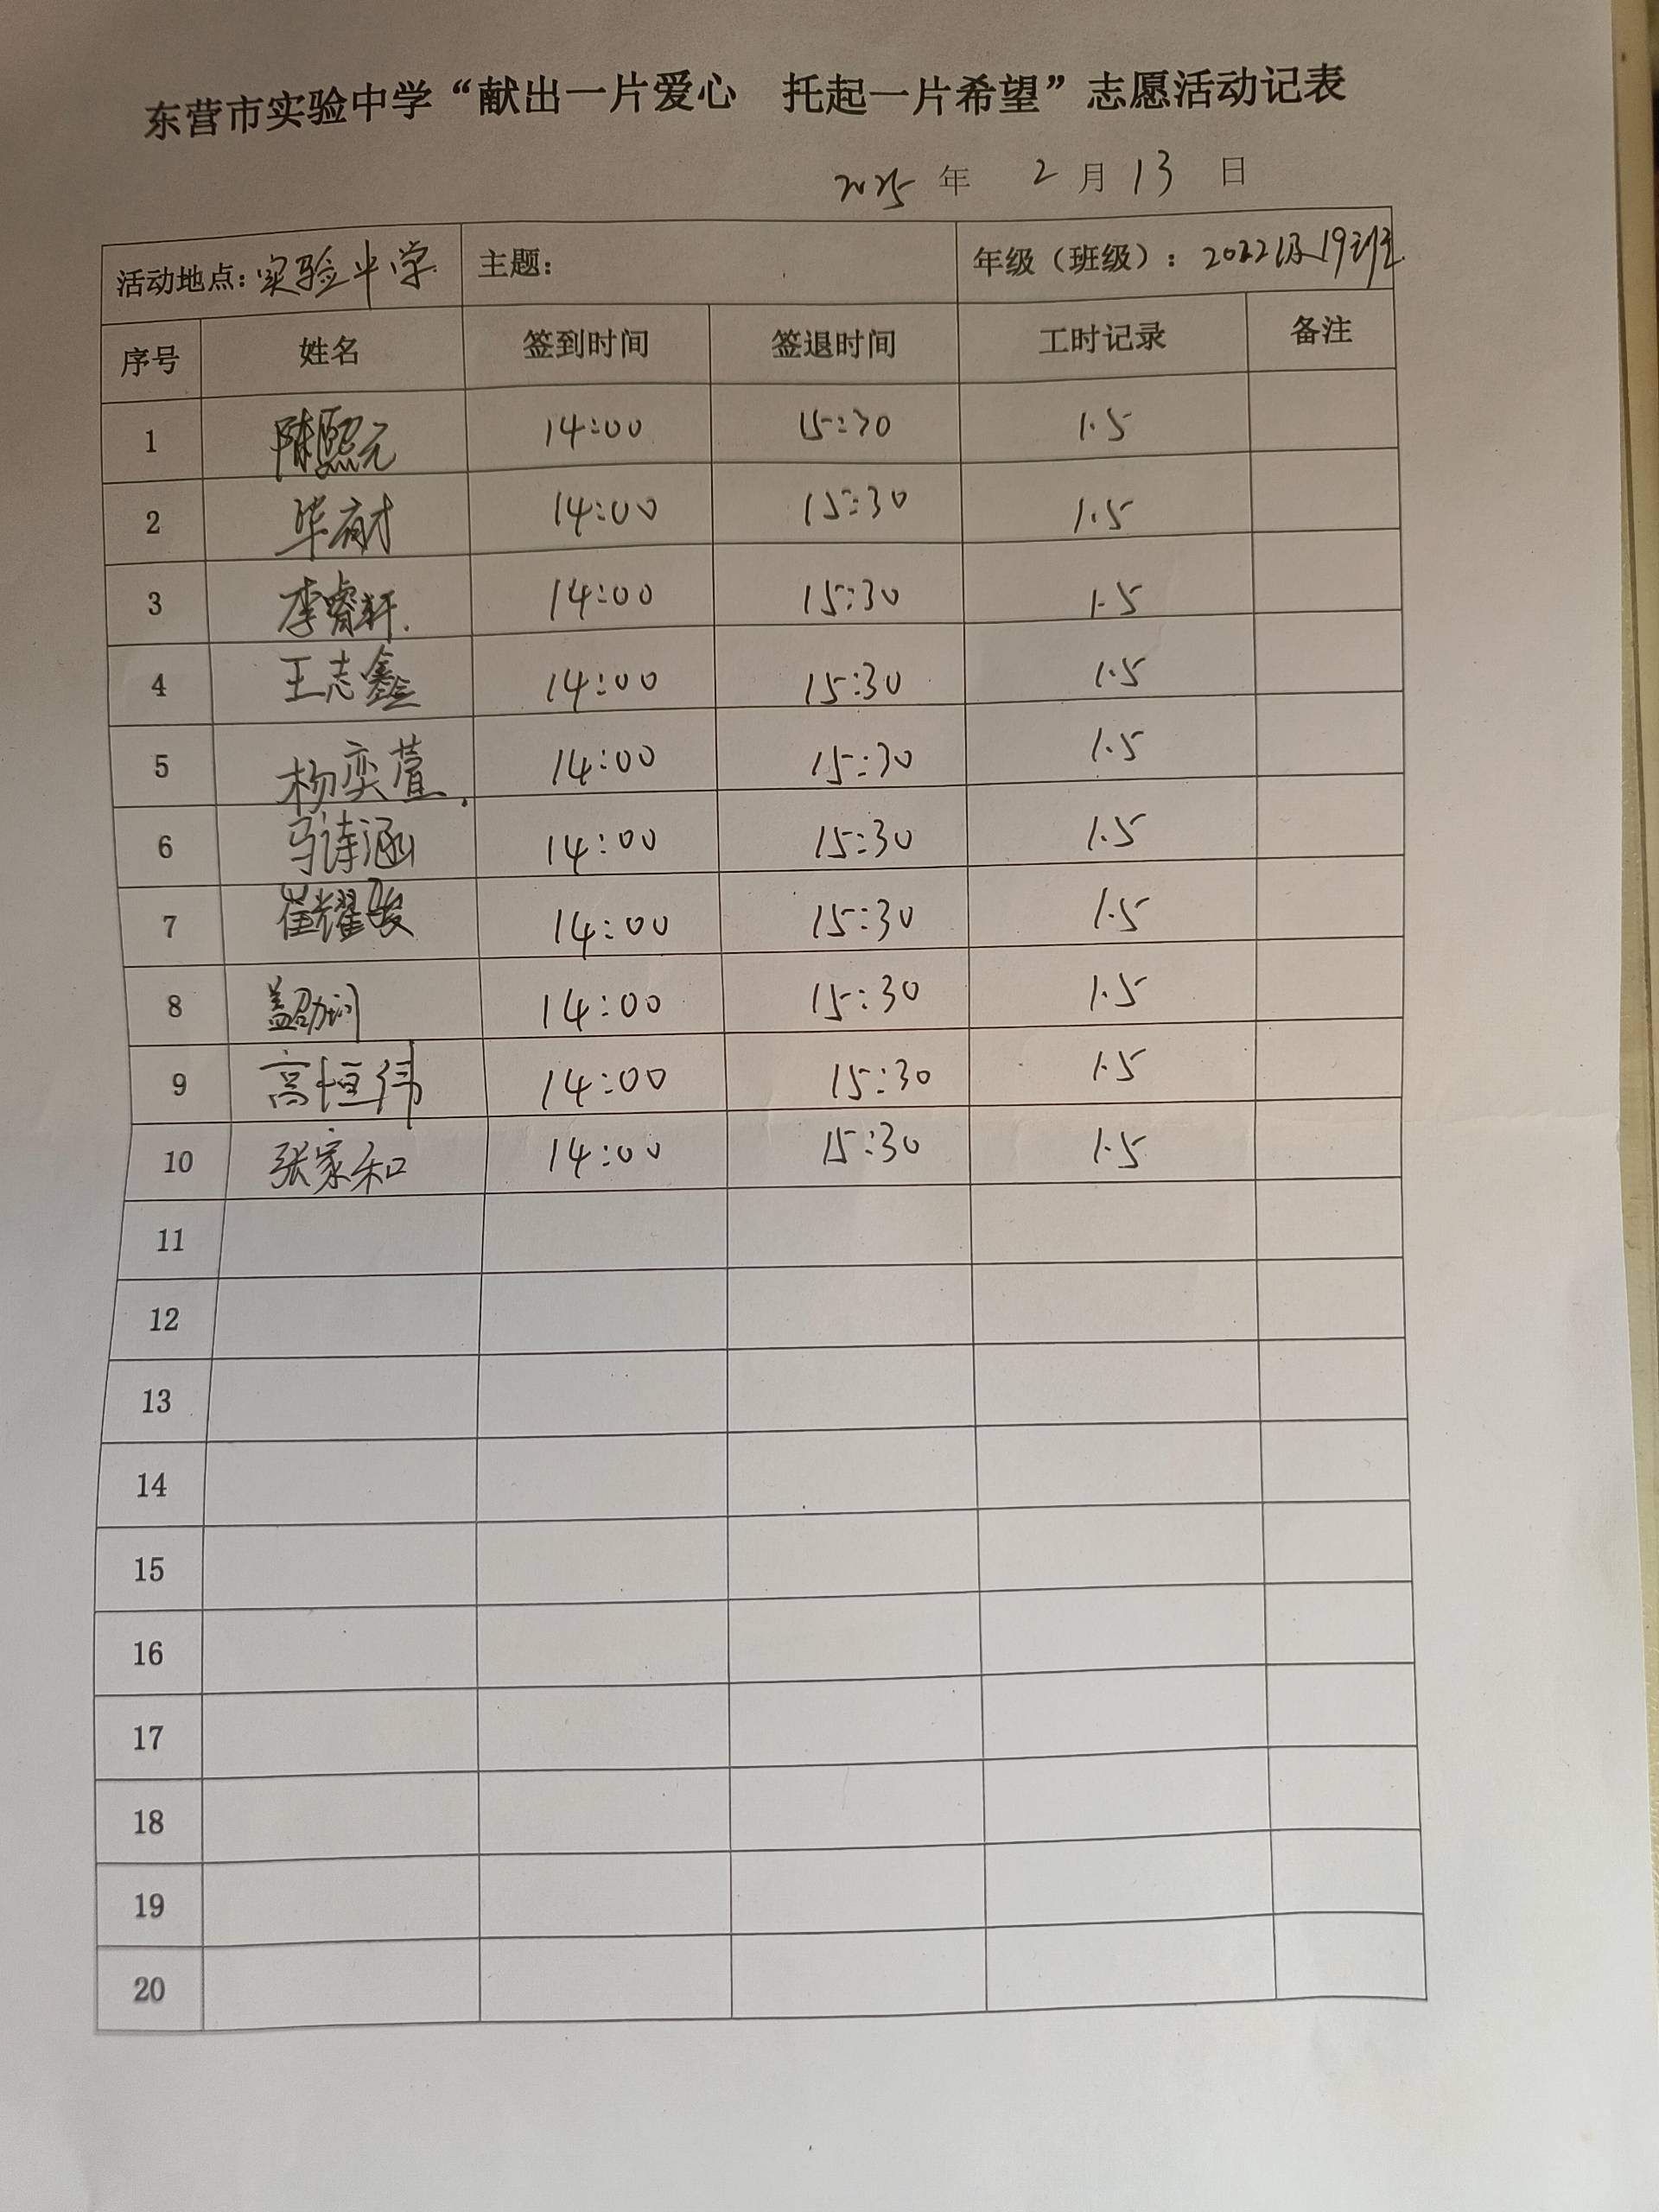 东营市实验中学“献出一片爱心 托起一片希望”志愿活动记表
2025 年 2 月 13 日
活动地点：实验中学 主题： 年级（班级）：2022级19班
序号 姓名 签到时间 签退时间 工时记录 备注
1 陈熙元 14:00 15:30 1.5
2 毕 14:00 15:30 1.5
3 李睿轩. 14:00 15:30 1.5
4 王志鑫 14:00 15:30 1.5
5 杨奕萱. 14:00 15:30 1.5
6 马诗涵 14:00 15:30 1.5
7 崔耀骏 14:00 15:30 1.5
8 盖劭 14:00 15:30 1.5
9 高恒伟 14:00 15:30 1.5
10 张家和 14:00 15:30 1.5
11
12
13
14
15
16
17
18
19
20